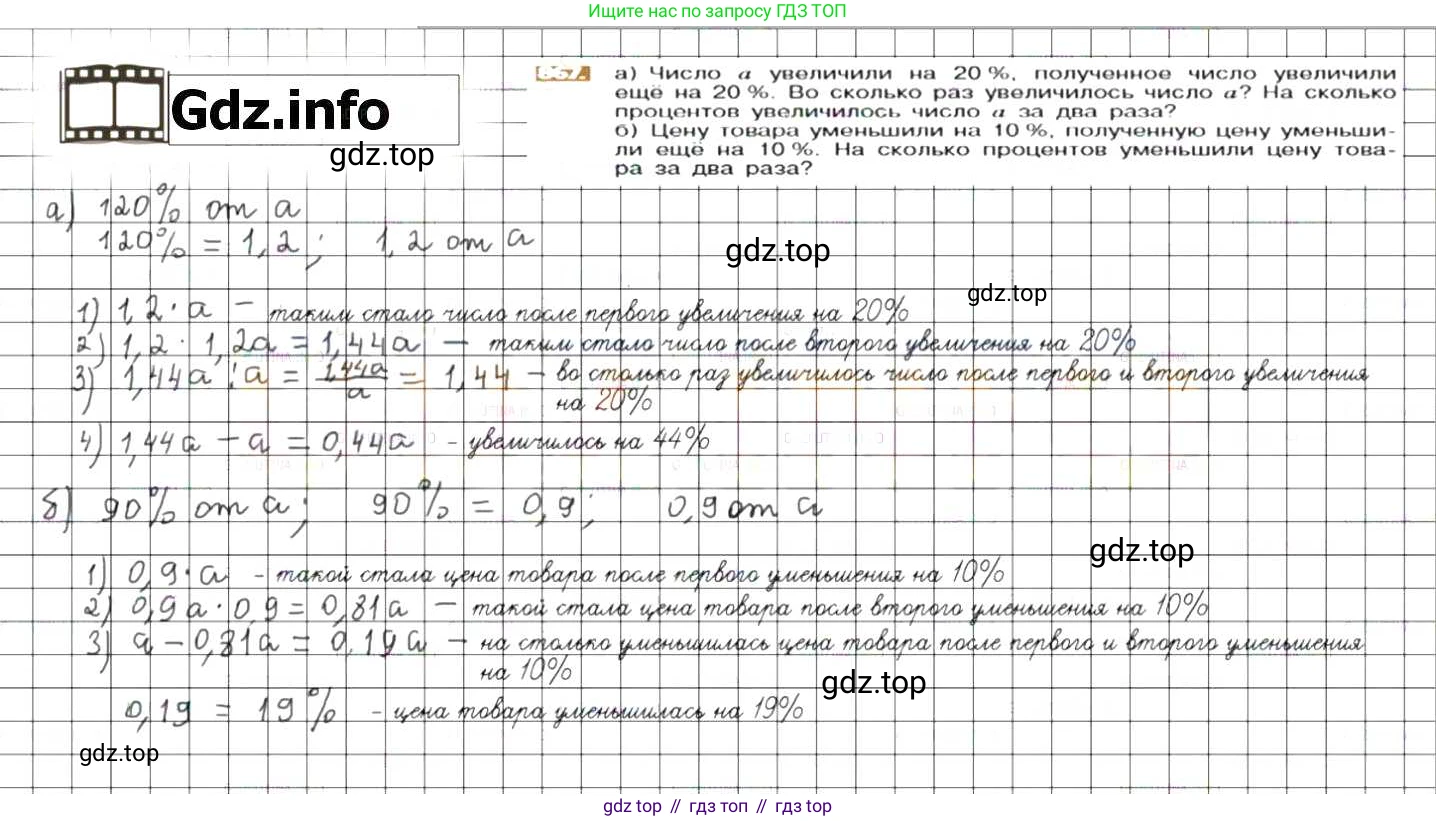 Ищите нас по запросу ГДЗ ТОП
Gdz.info
gdz.top
а) Число a увеличили на 20 %, полученное число увеличили
ещё на 20 %. Во сколько раз увеличилось число a? На сколько
процентов увеличилось число a за два раза?
б) Цену товара уменьшили на 10 %, полученную цену уменьши-
ли ещё на 10 %. На сколько процентов уменьшили цену това-
ра за два раза?
а) 120% от a
120% = 1,2; 1,2 от a
gdz.top
gdz.top
1) 1,2 · a – таким стало число после первого увеличения на 20%
2) 1,2 · 1,2a = 1,44a – таким стало число после второго увеличения на 20%
3) 1,44a : a = 1,44a/a = 1,44 – во столько раз увеличилось число после первого и второго увеличения
на 20%
4) 1,44a – a = 0,44a - увеличилось на 44%
б) 90% от a; 90% = 0,9; 0,9 от a
gdz.top
1) 0,9 · a - такой стала цена товара после первого уменьшения на 10%
2) 0,9a · 0,9 = 0,81a – такой стала цена товара после второго уменьшения на 10%
3) a – 0,81a = 0,19a – на столько уменьшилась цена товара после первого и второго уменьшения
на 10%
gdz.top
0,19 = 19% - цена товара уменьшилась на 19%
gdz.top
gdz top // гдз топ // gdz top